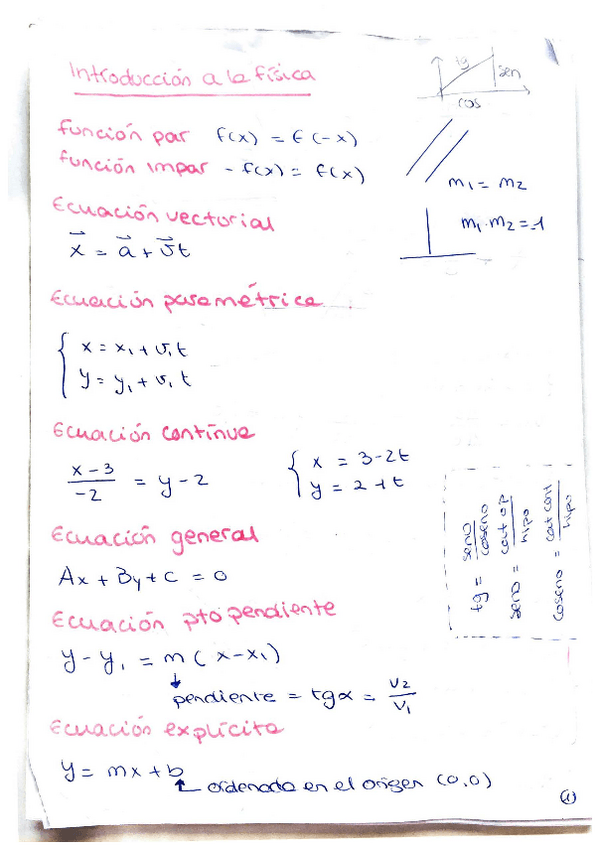 Introducción a la física
tg
sen
cos
función par f(x) = f(-x)
función impar - f(x) = f(x)
m₁ = m₂
m₁·m₂ = -1
Ecuación vectorial
x⃗ = a⃗ + v⃗t
Ecuación paramétrica
x = x₁ + v₁t
y = y₁ + v₁t
Ecuación contínua
x-3/-2 = y-2
x = 3-2t
y = 2+t
tg = seno/coseno
seno = cat op/hipo
coseno = cat cont/hipo
Ecuación general
Ax + By + C = 0
Ecuación pto pendiente
y-y₁ = m(x-x₁)
pendiente = tgα = v₂/v₁
Ecuación explícita
y = mx + b
ordenada en el origen (0,0)
(1)